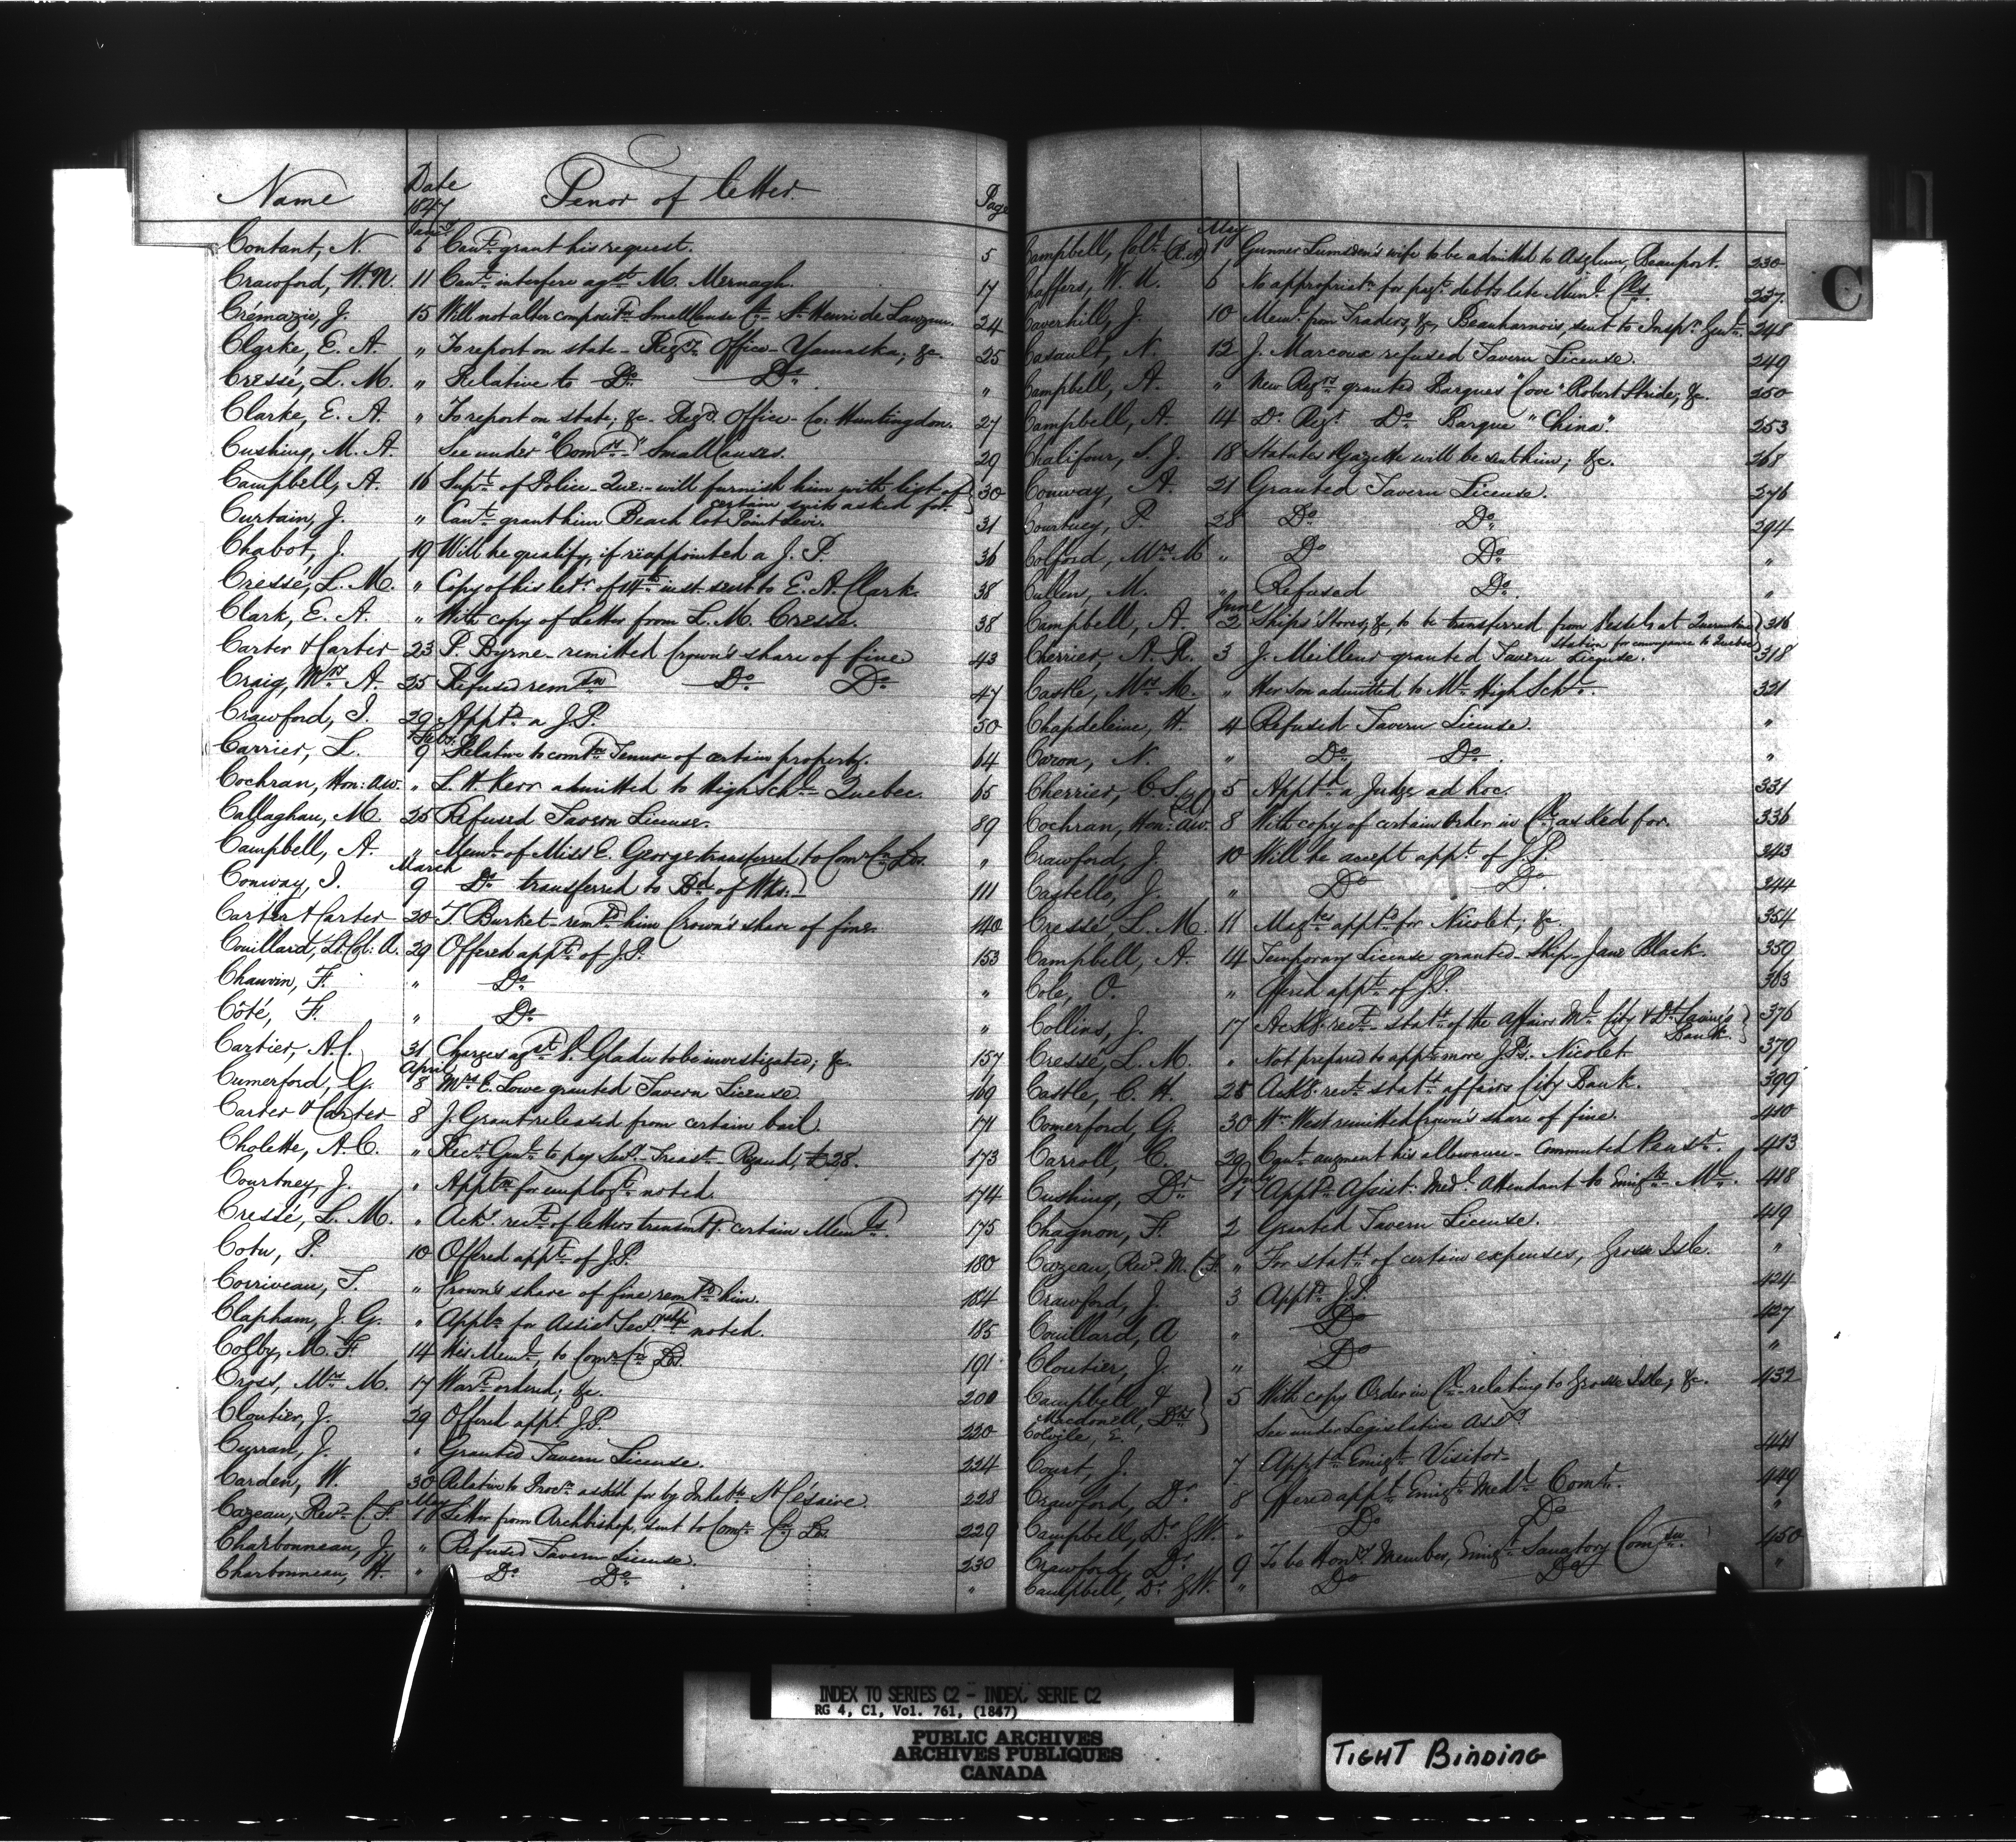 Name Date 1847 Tenor of letter. Page
Contant, N. Jany 6 Cant grant his request. 5
Crawford, W.N. 11 Cant interfere agst M. Mernagh. 17
Crémazie, J. 15 Will not alter composit'n Small Cause Ct St Henri de Lauzon. 24
Clarke, E. A. " To report on state - Regr's Office - Yamaska, &c. 25
Cressé, L. M. " Relative to Do Do. "
Clarke, E. A. " To report on state, &c. Regr's Office - Co: Huntingdon. 27
Cushing, M. A. See under "Comrs" Small Causes. 29
Campbell, A. 16 Supt of Police - Que: - will furnish him with list of 30
certain suits asked for.
Curtain, J. " Cant grant him Beach lot Point Levi. 31
Chabot, J. 19 Will he qualify, if reäppointed a J. P. 36
Cressé, L. M. " Copy of his letr of inst. sent to E. A. Clark. 38
Clark, E. A. " With copy of letter from L. M. Cressé. 38
Carter & Carter 23 P. Byrne - remitted Crown's share of fine 43
Craig, Mrs A. 25 Refused remssn Do Do 47
Crawford, I. 29 Appd a J.P. 50
Carrier, L. Feby 9 Relative to comtn Tenure of certain property. 64
Cochran, Hon: A.W. " L. H. Kerr admitted to High Schl Quebec. 65
Callaghan, M. 25 Refused Tavern License. 89
Campbell, A. " Meml of Miss E. George transferred to Comr Cn Lds. "
Conway, J. March 9 Do transferred to Bd of Wks. 111
Carter & Carter 20 T. Burket - remd him Crown's share of fine. 140
Couillard, Lt Col: A. 29 Offered appt of J.P. 153
Chauvin, F. " Do "
Côté, F. " Do "
Cartier, A.C. 31 Charges agst C. Gladu to be investigated; &c. 157
Cumerford, G. April 8 Mrs E. Lowe granted Tavern License 169
Carter & Carter 8 J. Grant released from certain bail 171
Cholette, A. C. " Recr Genl to pay Secy Treast Rigaud, £28. 173
Courtney, J. " Apptn for employt noted. 174
Cressé, L. M. " Ackg rect of letters transmg certain Memls. 175
Cotu, P. 10 Offered appt of J.P. 180
Corriveau, T. " Crown's share of fine remd him. 184
Clapham, J. G. " Appln for Assist Secryship noted. 185
Colby, M. F. 14 His Meml, to Comr Cn Lds. 191
Cross, Mrs M. 17 Wart ordered; &c. 200
Cloutier, J. 29 Offered appt J.P. 220
Curran, J. " Granted Tavern License. 224
Carden, W. 30 Relative to Procn asked for by Inhabts St Césaire. 228
Cazeau, Revd C. F. May 1 Letter from Archbishop, sent to Comr Cn Lds 229
Charbonneau, J. " Refused Tavern License. 230
Charbonneau, H. " Do Do "
Campbell, Colr (R.A) May 1 Gunner Lumsden's wife to be admitted to Asylum, Beauport. 230
Chaffers, W. U. 6 No appropriatn for payt debts late Munl Cls. 237
Caverhill, J. 10 Meml from Traders, &c, Beauharnois, sent to Inspr Genl. 248
Casault, N. 12 J. Marcoux refused Tavern License. 249
Campbell, A. " New Regrs granted Barques "Cove" Robert Stride, &c. 250
Campbell, A. 14 Do Regr Do Barque "China". 253
Chalifour, S. J. 18 Statutes & Gazette will be sent him; &c. 268
Conway, A. 21 Granted Tavern License. 276
Courbusy, P. 28 Do Do 294
Colford, Mrs M " Do Do "
Cullen, M. " Refused Do. "
Campbell, A. June 2 Ships' Stores, &c, to be transferred from Vessels at Quarantine 316
Station for conveyance to Quebec
Cherrier, A. R. 3 J. Meilleur granted Tavern License. 318
Castle, Mrs M. " Her son admitted to Ml High Schl. 321
Chapdeleine, H. 4 Refused Tavern License. "
Caron, N. " Do Do. "
Cherrier, C. S. (QC) 5 Apptd a Judge ad hoc. 331
Cochran, Hon: A.W. 8 With copy of certain Order in Cl asked for. 336
Crawford, J. 10 Will he accept appt of J.P. 343
Castello, J. " Do Do. 344
Cressé, L. M. 11 Magtes appd for Nicolet; &c. 354
Campbell, A. 14 Temporary License granted - Ship - Jane Black. 359
Cole, O. " Offered appt of J.P. 363
Collins, J. 17 Ackg rect - statt of the affairs Ml City & Dt Savings 376
Bank
Cressé, L. M. " Not prepared to appt more J.Ps. Nicolet 379
Castle, C. H. 28 Ackg rect statt affairs City Bank. 399
Comerford, G. 30 Wm West remitted Crown's share of fine. 410
Carroll, C. 29 Cant augment his allowance - Commuted Pensr. 413
Cushing, Dr July 1 Appd Assist: Medl Attendant to Emigts Ml. 418
Chagnon, F. 2 Granted Tavern License. 419
Cazeau, Revd M. C.F. " For statt of certain expenses, Grosse Isle. "
Crawford, J. 3 Apptd J.P. 424
Couillard, A " Do 427
Cloutier, J. " Do "
Campbell & 5 With copy Order in Cl relating to Grosse Isle, &c. 432
Macdonell, Drs
Colvile, E. See under Legislative Assy.
Court, J. 7 Apptd Emigt Visitor 441
Crawford, Dr 8 Offered appt Emigt Medl Comr. 449
Campbell, Dr G.W. " Do Do "
Crawford Dr 9 To be Hony Member, Emigt Sanatory Comssn. 450
Campbell, Dr G.W. " Do Do "
C
INDEX TO SERIES C2 - INDEX, SERIE C2
RG 4, C1, Vol. 761, (1847)
PUBLIC ARCHIVES
ARCHIVES PUBLIQUES
CANADA
TIGHT BINDING